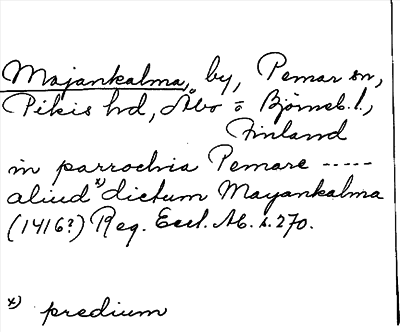 Majankalma, by, Pemar sn,
Pikis hd, Åbo o Björneb. l.,
Finland
in parrochia Pemare -----
aliud x) dictum Mayankalma
(1416?) Reg. Eccl. Ab. s. 270.
x) predium